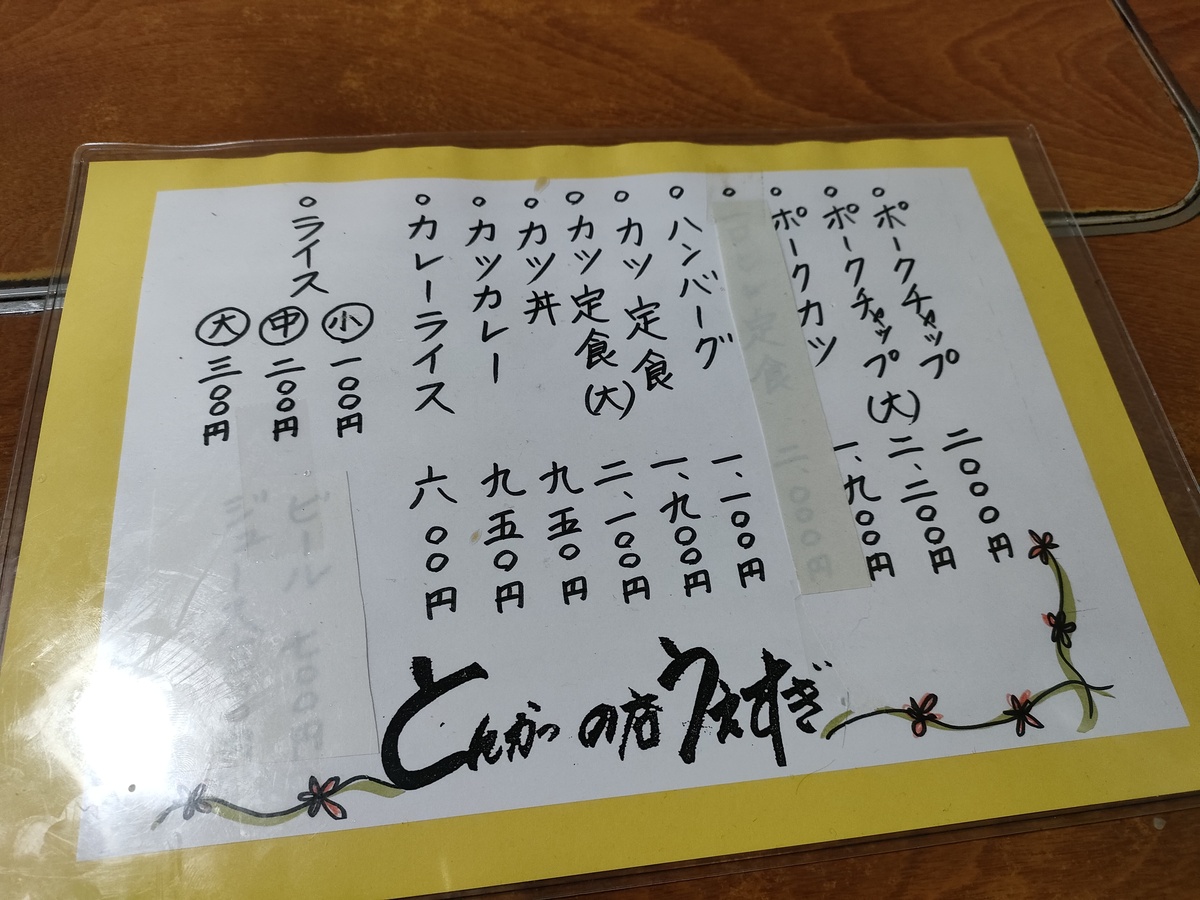 ○ポークチャップ 二〇〇〇円
○ポークチャップ(大) 二、二〇〇円
○ポークカツ 一、九〇〇円
○ 定食 二、〇〇〇円
○ハンバーグ 一、一〇〇円
○カツ定食 一、九〇〇円
○カツ定食(大) 二、一〇〇円
○カツ丼 九五〇円
○カツカレー 九五〇円
○カレーライス 六〇〇円
○ライス
小 一〇〇円
中 二〇〇円
大 三〇〇円
ビール
とんかつの店うえすぎ